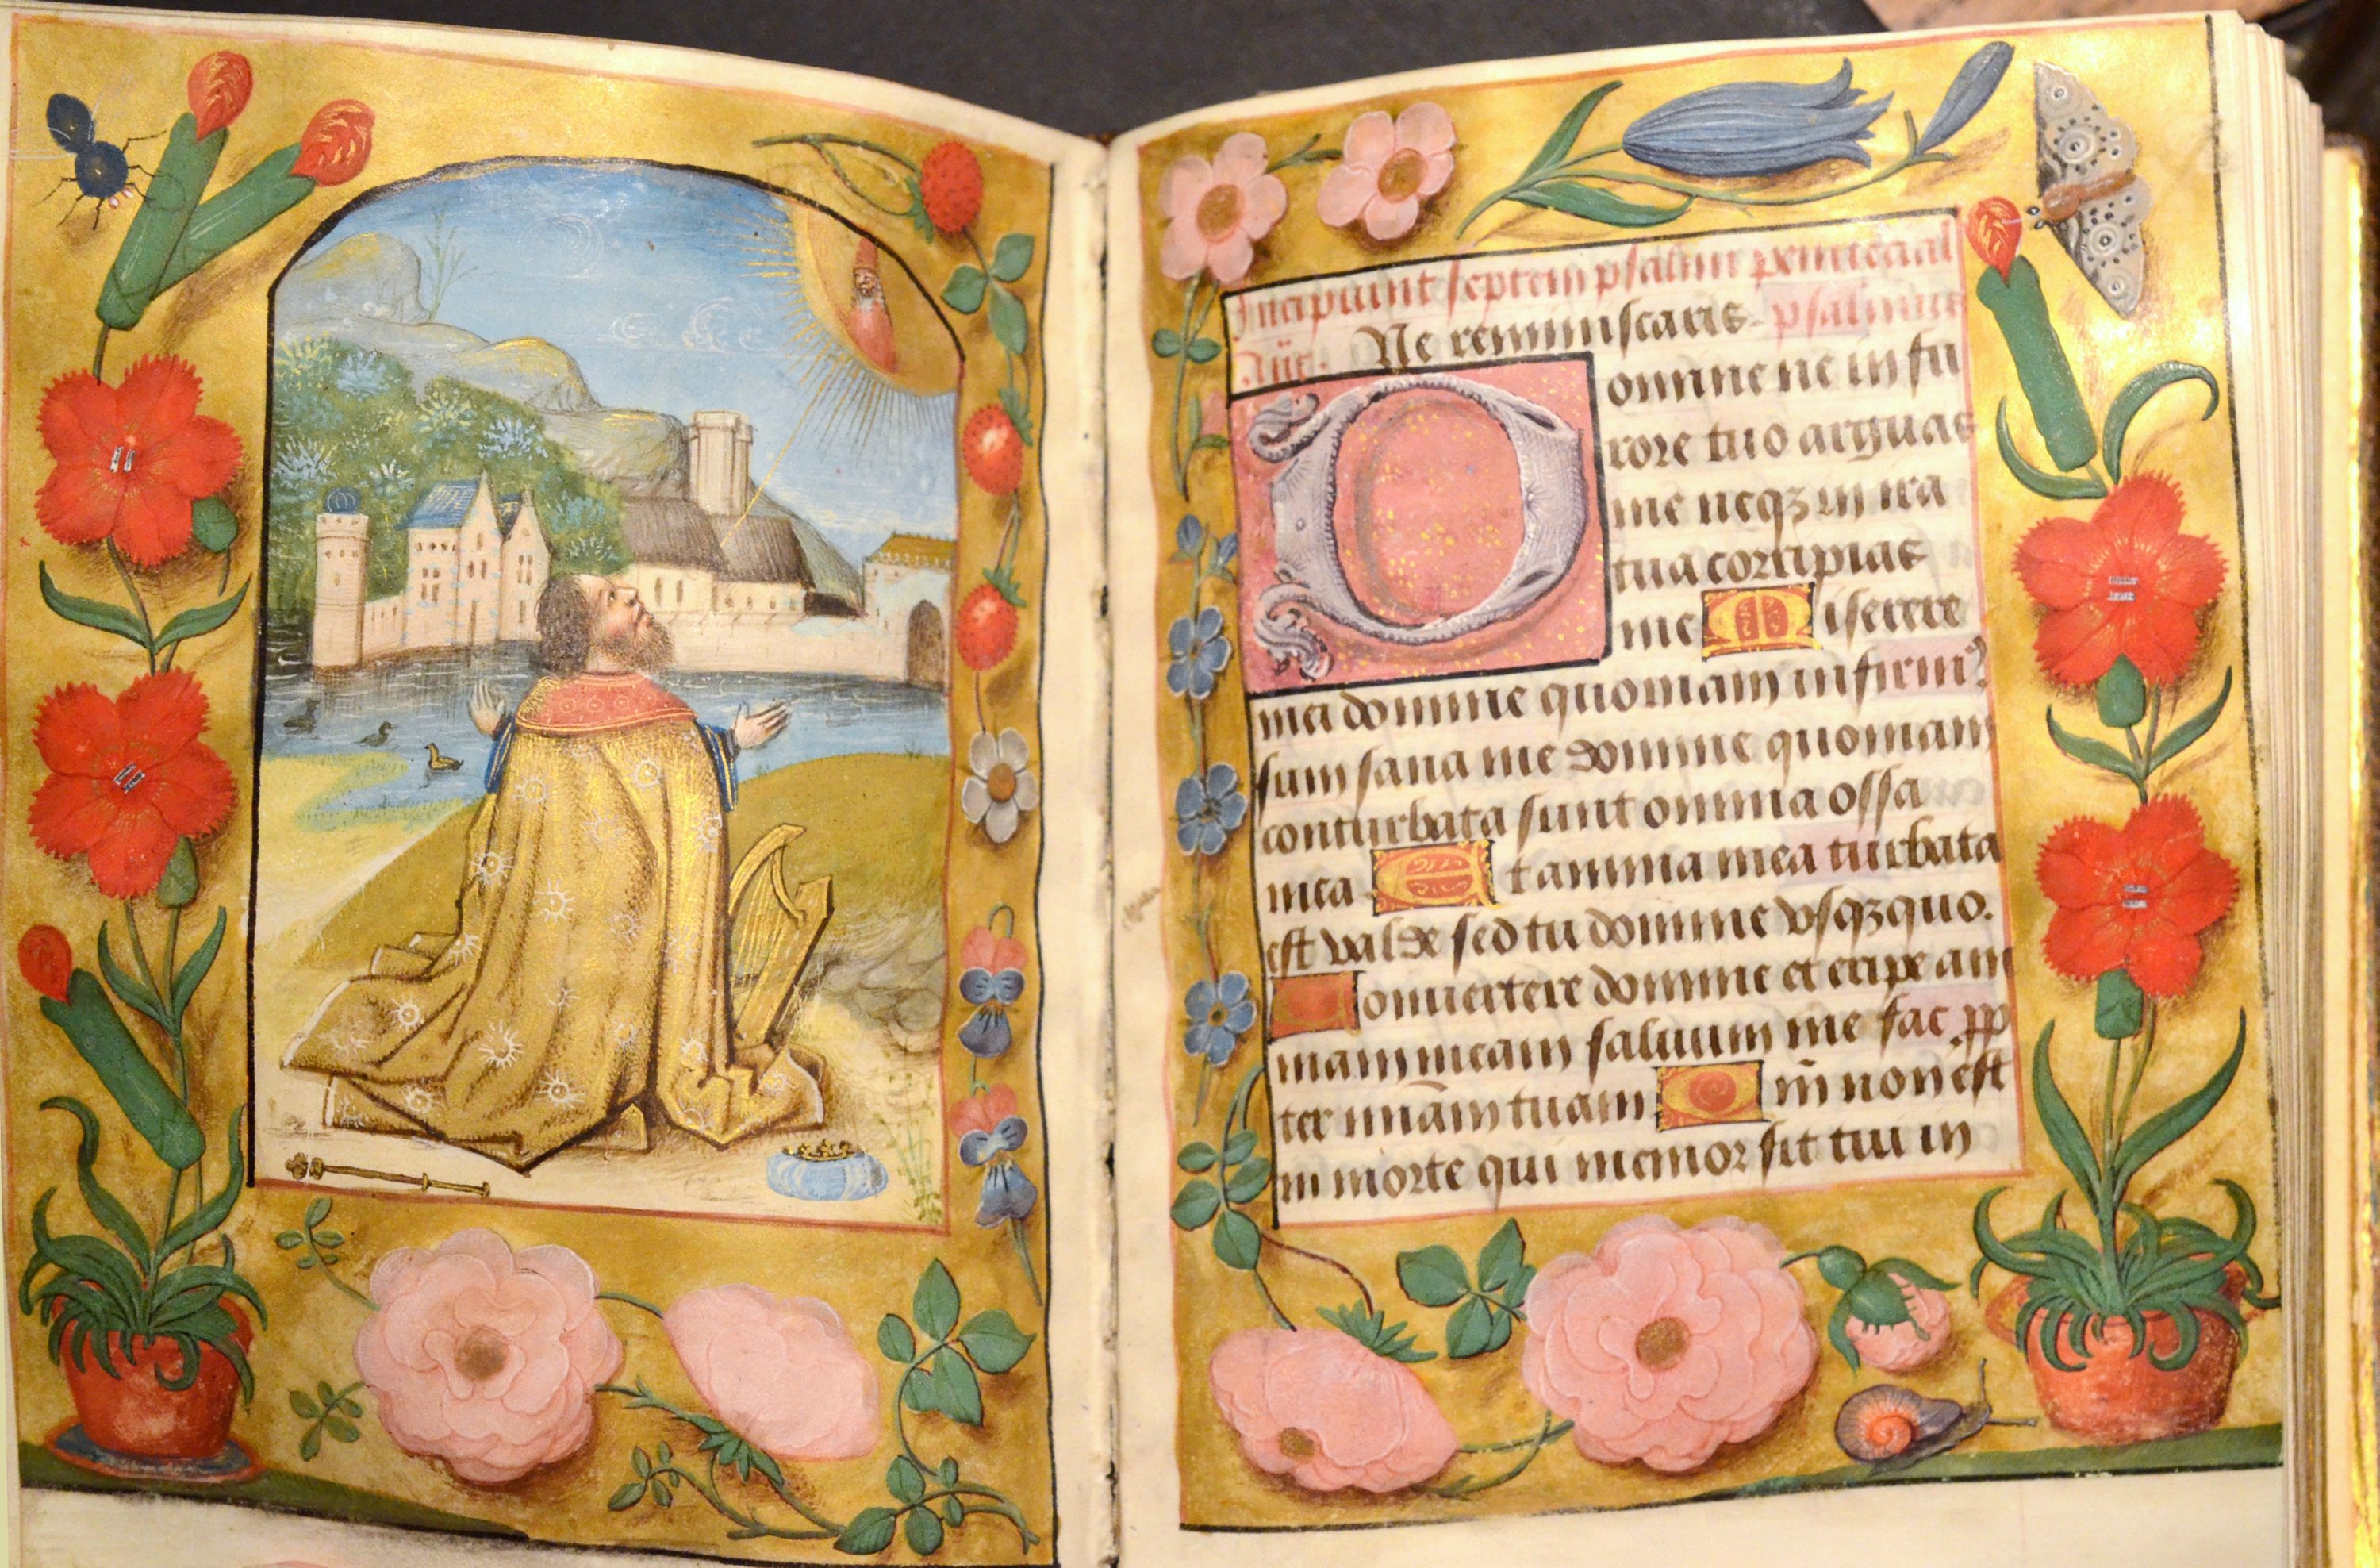 Incipiunt septem psalmi penitēcial
Añt. Ne reminiscaris. psalmus
Domine ne in fu
rore tuo arguas
me neqꝫ in ira
tua corripias
me Miserere
mei domine quoniam infirmꝰ
sum sana me domine quoniam
conturbata sunt omnia ossa
mea Et anima mea turbata
est valde sed tu domine vsqꝫquo.
Conuertere domine et eripe am
mam meam saluum me fac pp
ter miām tuam Qm̄ non est
in morte qui memor sit tui in